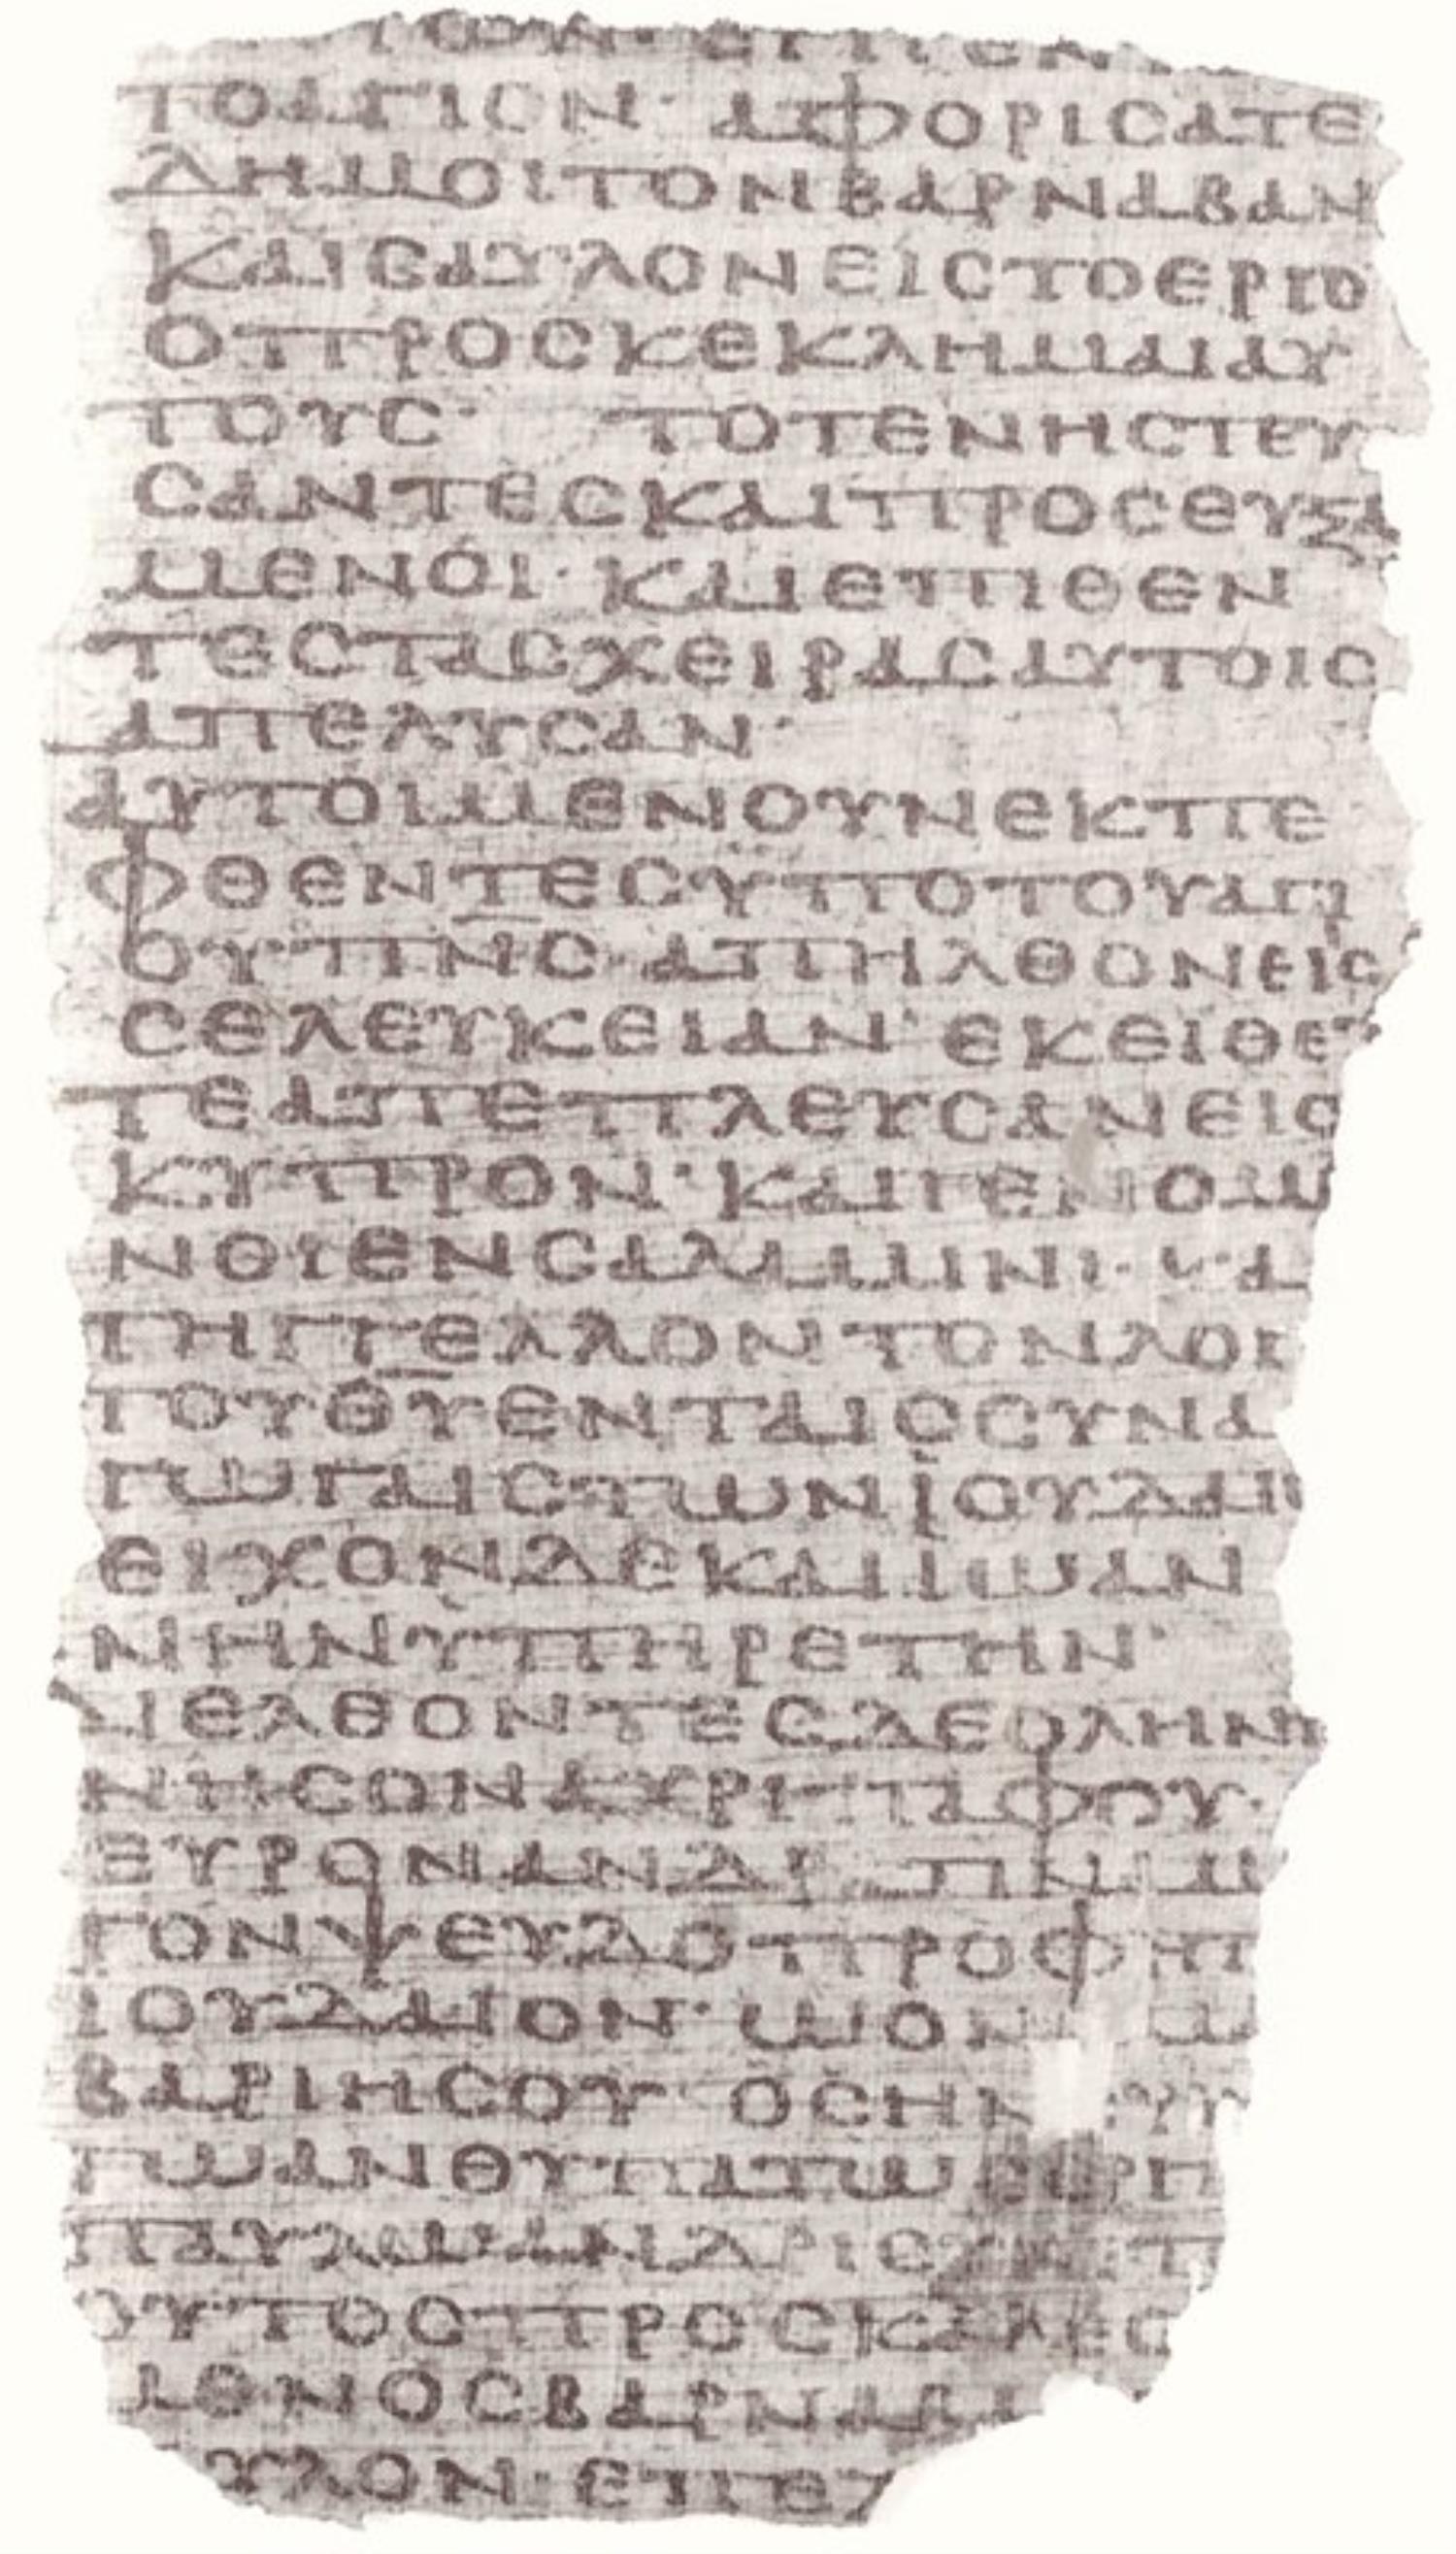 ΤΩΝ· ΕΙΠΕΝ
ΤΟΑΓΙΟΝ· ΑΦΟΡΙСΑΤΕ
ΔΗΜΟΙΤΟΝΒΑΡΝΑΒΑΝ
ΚΑΙСΑΥΛΟΝΕΙСΤΟΕΡΓΟ
ΟΠΡΟСΚΕΚΛΗΜΑΙΑΥ
ΤΟΥС· ΤΟΤΕΝΗСΤΕΥ
СΑΝΤΕСΚΑΙΠΡΟСΕΥΞΑ
ΜΕΝΟΙ· ΚΑΙΕΠΙΘΕΝ
ΤΕСΤΑСΧΕΙΡΑСΑΥΤΟΙС
ΑΠΕΛΥСΑΝ·
ΑΥΤΟΙΜΕΝΟΥΝΕΚΠΕ
ΦΘΕΝΤΕСΥΠΟΤΟΥΑΓΙ
ΟΥΠ̅Ν̅С̅· ΑΠΗΛΘΟΝΕΙС
СΕΛΕΥΚΕΙΑΝ· ΕΚΕΙΘΕ
ΤΕΑΠΕΠΛΕΥСΑΝΕΙС
ΚΥΠΡΟΝ· ΚΑΙΓΕΝΟΜ
ΝΟΙΕΝСΑΛΑΜΙΝΙ· Κ·Α
ΤΗΓΓΕΛΛΟΝΤΟΝΛΟΓ
ΤΟΥΘ̅Υ̅ΕΝΤΑΙССΥΝΑ
ΓΩΓΑΙСΤΩΝΙΟΥΔΑΙ
ΕΙΧΟΝΔΕΚΑΙΙΩΑΝ
ΝΗΝΥΠΗΡΕΤΗΝ·
ΔΙΕΛΘΟΝΤΕСΔΕΟΛΗΝΤ
ΝΗСΟΝΑΧΡΙΠΑΦΟΥ·
ΕΥΡΟΝΑΝΔΡ ΤΙΝ Μ
ΓΟΝΨΕΥΔΟΠΡΟΦΗΤ
ΙΟΥΔΑΙΟΝ· ΩΟΝ Μ
ΒΑΡΙΗСΟΥ· ΟСΗΝ СΥΝ
ΤΩΑΝΘΥΠΑΤΩСΕΡΓ
ΠΑΥΛΩΑΝΔΡΙСΥΝΕΤ
ΟΥΤΟСΠΡΟСΚΑΛΕС
ΜΕΝΟСΒΑΡΝΑΒΑ
ΥΛΟΝ· ΕΠΕΖ